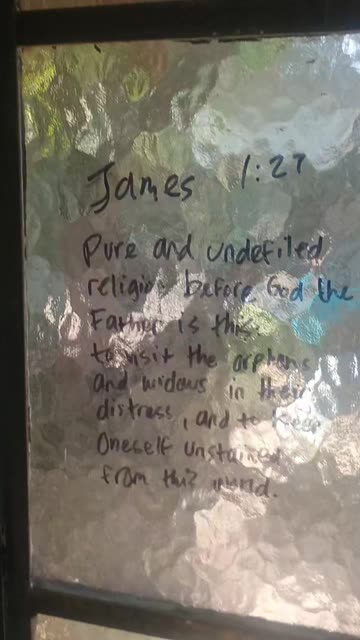 James 1:27
Pure and undefiled
religion before God the
Father is this
to visit the orphans
and widows in their
distress, and to keep
Oneself unstained
from this world.